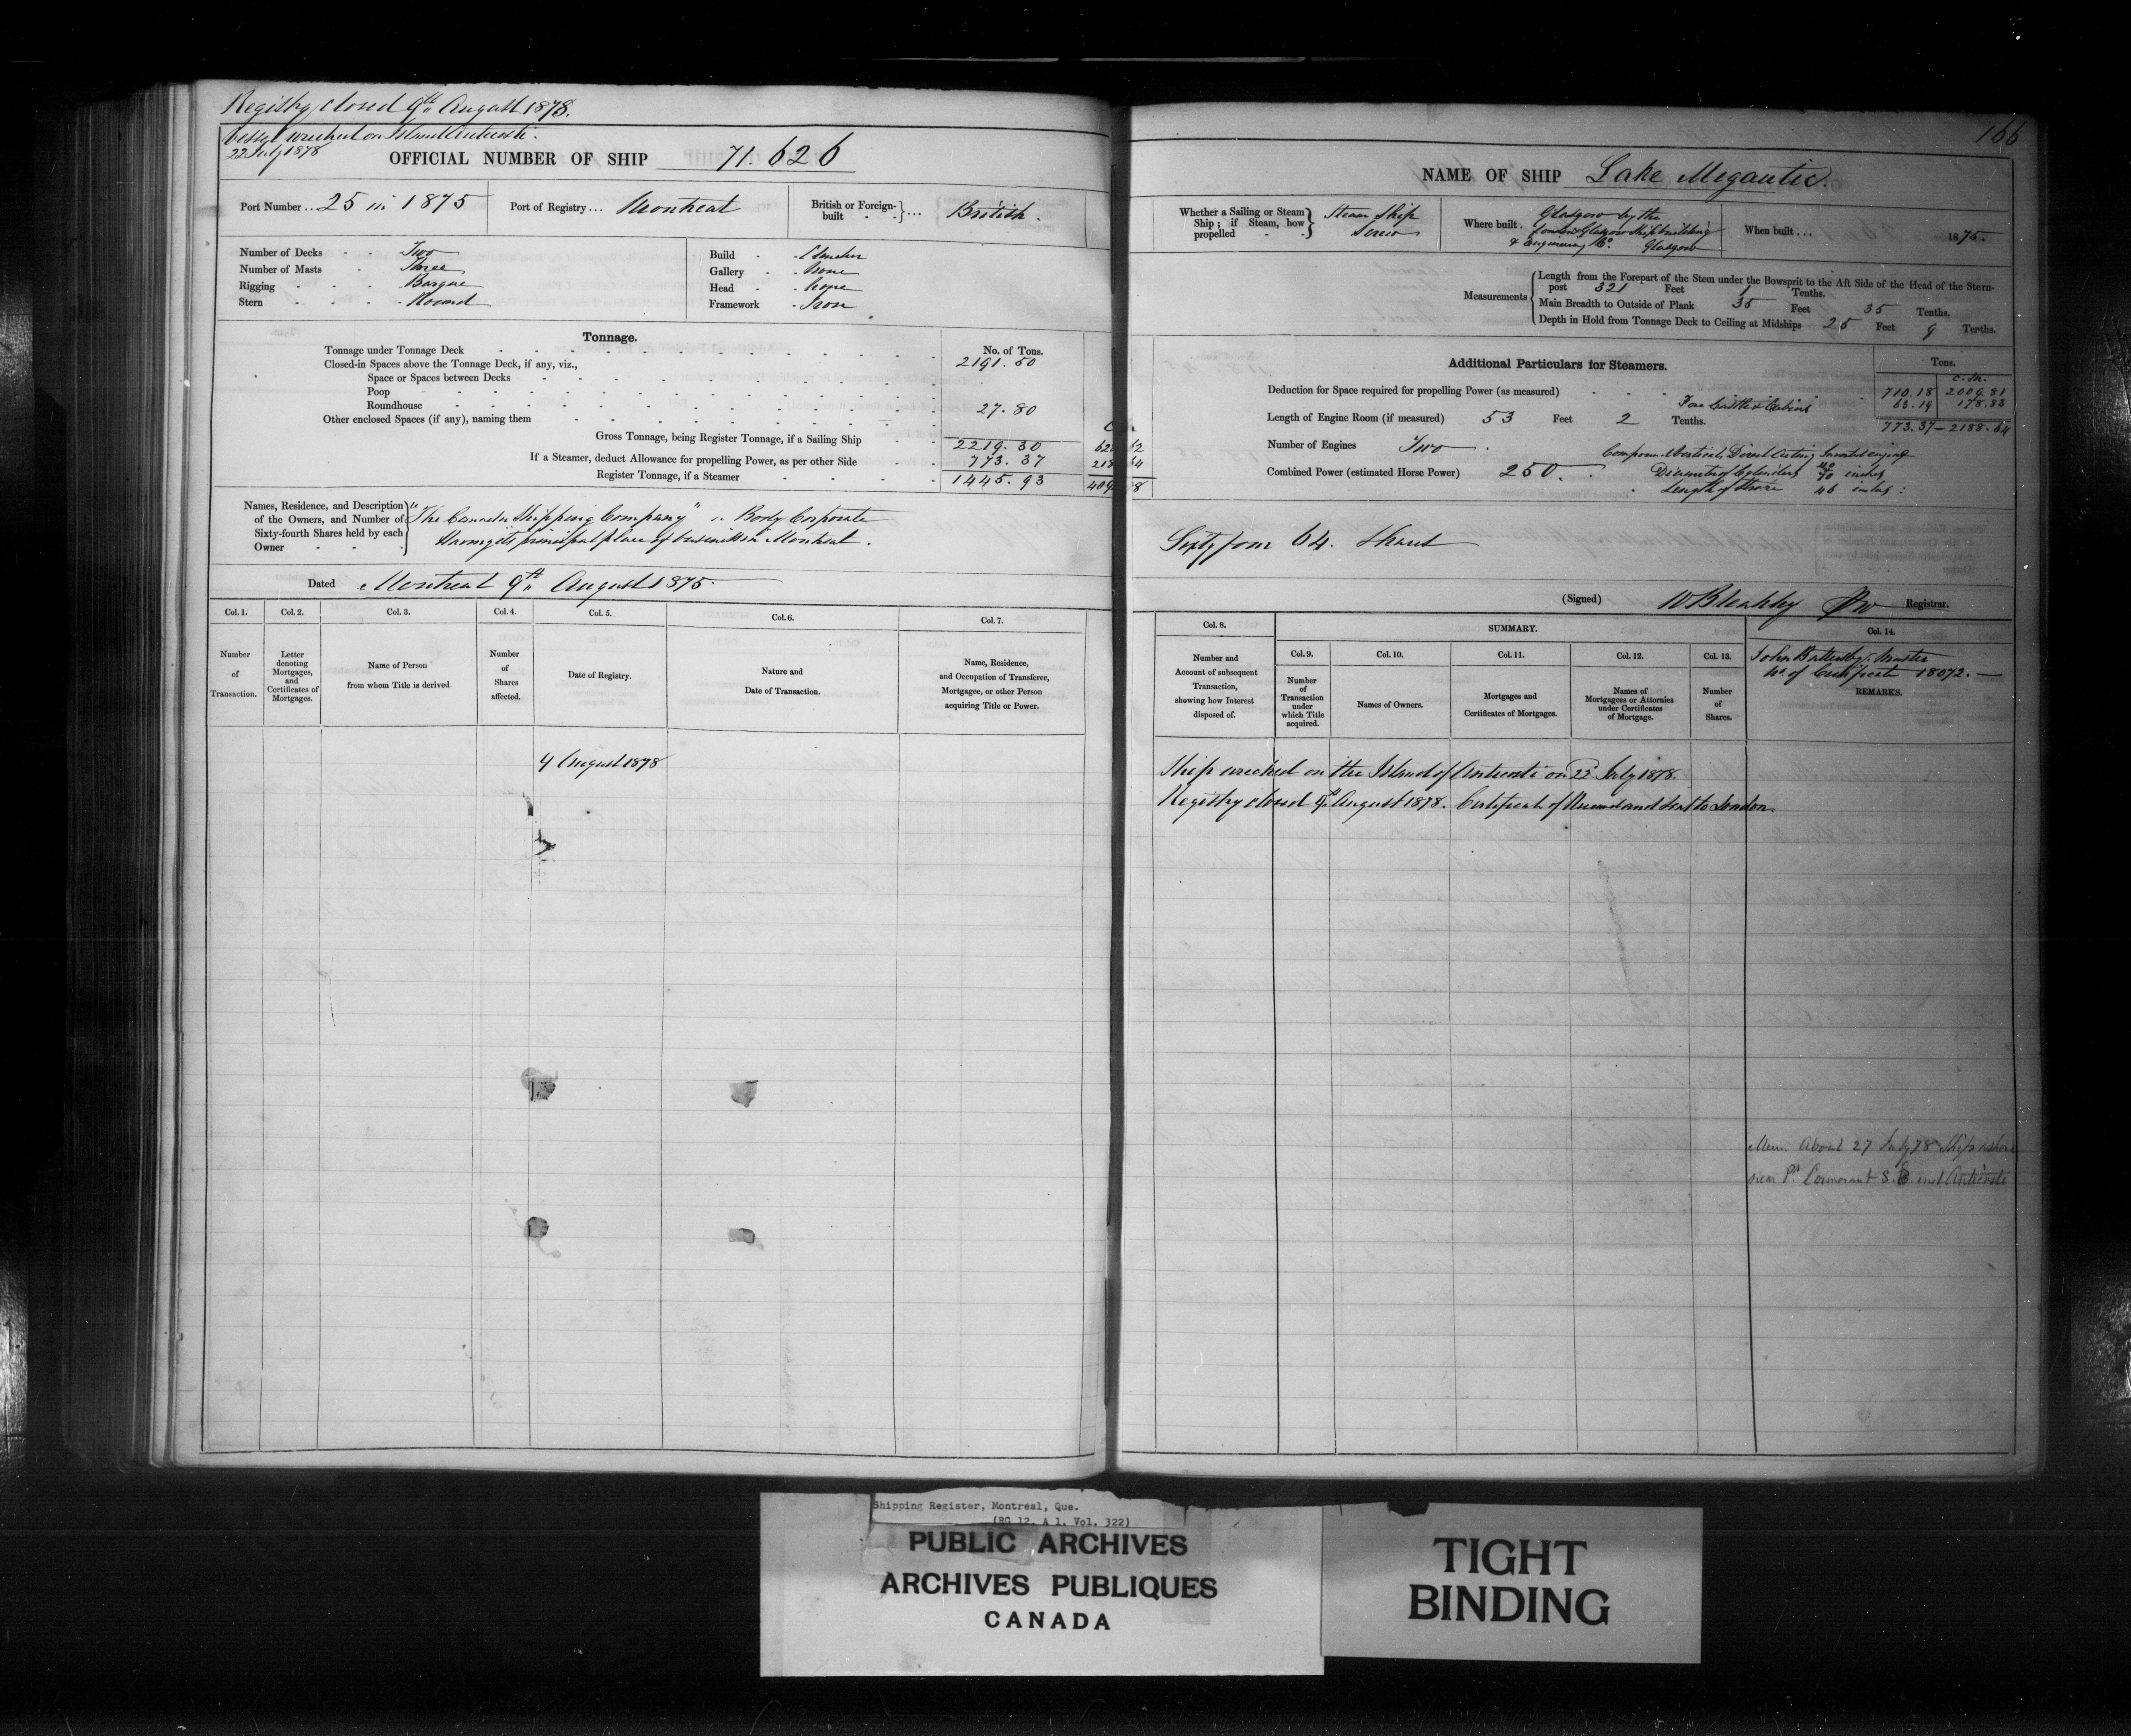 Registry closed 9th August 1878.
Vessel wrecked on Island Anticosti.
22 July 1878
OFFICIAL NUMBER OF SHIP 71.626
Port Number .. 25 in 1875
Port of Registry ... Montreal
British or Foreign-built ... British.
Number of Decks Two
Number of Masts Three
Rigging Barque
Stern Round
Build Clincher
Gallery None
Head None
Framework Iron
Tonnage.
No. of Tons.
Tonnage under Tonnage Deck 2191.50
Closed-in Spaces above the Tonnage Deck, if any, viz.,
Space or Spaces between Decks
Poop
Roundhouse 27.80
Other enclosed Spaces (if any), naming them
Gross Tonnage, being Register Tonnage, if a Sailing Ship 2219.30
If a Steamer, deduct Allowance for propelling Power, as per other Side 773.37
Register Tonnage, if a Steamer 1445.93
Names, Residence, and Description of the Owners, and Number of Sixty-fourth Shares held by each Owner
"The Canada Shipping Company" a Body Corporate
Having its principal place of business in Montreal.
Dated Montreal 9th August 1875.
Col. 1. Col. 2. Col. 3. Col. 4. Col. 5. Col. 6. Col. 7.
Number of Transaction.
Letter denoting Mortgages, and Certificates of Mortgages.
Name of Person from whom Title is derived.
Number of Shares affected.
Date of Registry.
Nature and Date of Transaction.
Name, Residence, and Occupation of Transferee, Mortgagee, or other Person acquiring Title or Power.
9 August 1878
166
NAME OF SHIP Lake Megantic.
Whether a Sailing or Steam Ship; if Steam, how propelled
Steam Ship
Screw
Where built . Glasgow by the
London & Glasgow Shipbuilding
& Engineering Co. Glasgow
When built ... 1875.
Measurements
Length from the Forepart of the Stem under the Bowsprit to the Aft Side of the Head of the Stern-
post 321 Feet 1 Tenths.
Main Breadth to Outside of Plank 35 Feet 35 Tenths.
Depth in Hold from Tonnage Deck to Ceiling at Midships 25 Feet 9 Tenths.
Additional Particulars for Steamers.
Tons.
Deduction for Space required for propelling Power (as measured) 710.18 2009.81
63.19 178.83
773.37 - 2188.64
Length of Engine Room (if measured) 53 Feet 2 Tenths.
Number of Engines Two
Combined Power (estimated Horse Power) 250.
Diameter of Cylinders 40 70 inches
Length of Stroke 48 inches
Sixty four 64. Shares
(Signed) W Bleakley Registrar.
Col. 8. SUMMARY. Col. 14.
Col. 9. Col. 10. Col. 11. Col. 12. Col. 13.
Number and Account of subsequent Transaction, showing how Interest disposed of.
Number of Transaction under which Title acquired.
Names of Owners.
Mortgages and Certificates of Mortgages.
Names of Mortgagees or Attornies under Certificates of Mortgage.
Number of Shares.
John Battersby, Master
No. of Certificate 18072.
REMARKS.
Ship wrecked on the Island of Anticosti on 22 July 1878.
Registry closed 9th August 1878. Certificate of and sent to London.
Mem. About 27 July 78 Ship ashore
near Pt Cormorant S.E. end Anticosti
Shipping Register, Montreal, Que.
(RG 12, A 1, Vol. 322)
PUBLIC ARCHIVES
ARCHIVES PUBLIQUES
CANADA
TIGHT
BINDING